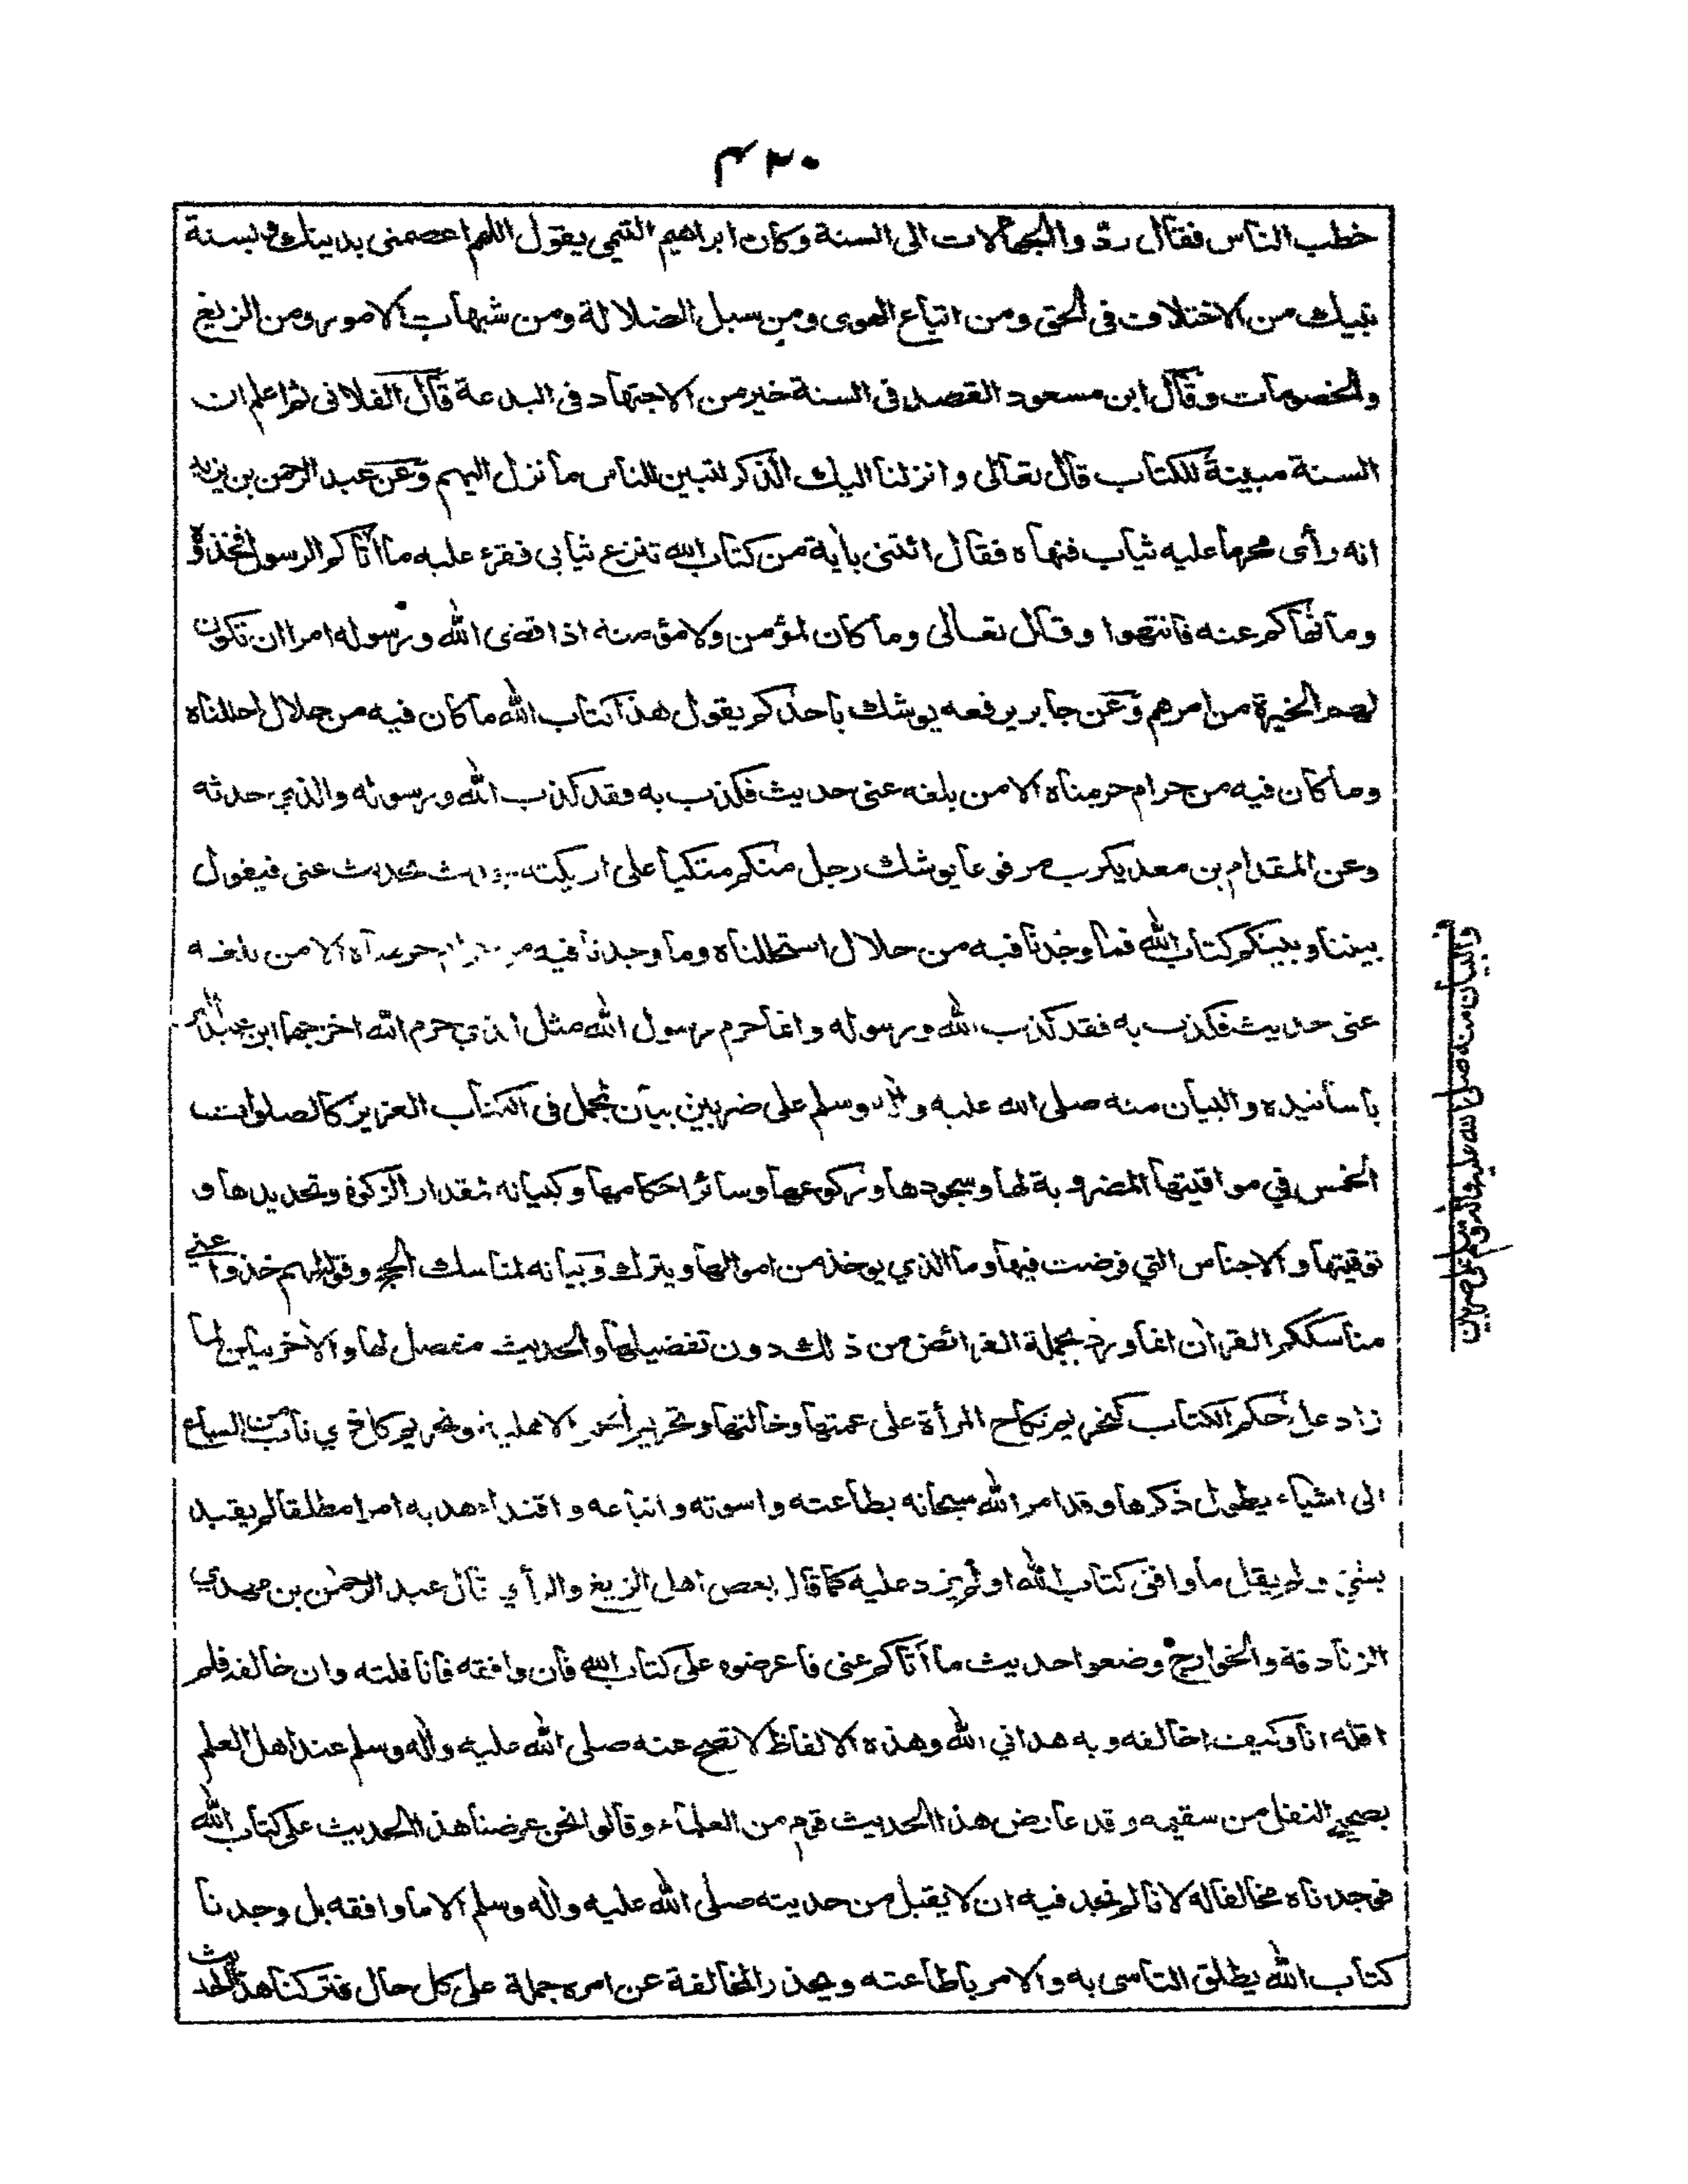 ۴۲۰
خطب الناس فقال ردّوا الجهالات الى السنة وكان ابراهيم التيمى يقول اللهم اعصمنى بدينك وبسنة
نبيك من الاختلاف فى الحق ومن اتباع الهوى ومن سبل الضلالة ومن شبهات الامور ومن الزيغ
والخصومات وقال ابن مسعود القصد فى السنة خير من الاجتهاد فى البدعة قال الفلانى ثم اعلم ان
السنة مبينة للكتاب قال تعالى وانزلنا اليك الذكر لتبين للناس ما نزل اليهم وعن عبد الرحمن بن يزيد
انه رأى محرما عليه ثياب فنهاه فقال ائتنى بأية من كتاب الله تنزع ثيابى فقرء عليه ما اتاكم الرسول فخذوه
وما نهاكم عنه فانتهوا وقال تعالى وما كان لمؤمن ولا مؤمنة اذا قضى الله ورسوله امرا ان تكون
لهم الخيرة من امرهم وعن جابر يرفعه يوشك باحدكم يقول هذا كتاب الله ما كان فيه من حلال احللناه
وما كان فيه من حرام حرمناه الا من بلغه عنى حديث فكذب به فقد كذب الله ورسوله والذي حدثه
وعن المقدام بن معديكرب مرفوعا يوشك رجل منكم متكيا على اريكته يحدث بحديث عنى فيقول
بيننا وبينكم كتاب الله فما وجدنا فيه من حلال استحللناه وما وجدنا فيه من حرام حرمناه الا من بلغه
عنى حديث فكذب به فقد كذب الله ورسوله وانما حرم رسول الله مثل الذي حرم الله اخرجها ابن عبد البر
باسانيده والبيان منه صلى الله عليه واله وسلم على ضربين بيان المجمل فى الكتاب العزيز كالصلوات
الخمس في مواقيتها المضروبة لها وسجودها وركوعها وسائر احكامها وكبيانه لمقدار الزكوة وتحديدها و
توقيتها والاجناس التي فرضت فيها وما الذي يوخذ من اموالها ويترك وبيانه لمناسك الحج وقوله لهم خذوا عني
مناسككم القران انما ورد بجملة الفرائض من ذلك دون تفضيلها والحديث مفصل لها والأخر بيان لما
زاد على حكم الكتاب كتحريم نكاح المرأة على عمتها وخالتها وتحريم الحمر الاهلية وتحريم كل ذي ناب من السباع
الى اشياء يطول ذكرها وقد امر الله سبحانه بطاعته واسوته واتباعه واقتداء هديه امرا مطلقا لم يقيد
بشئ ولم يقل ما وافق كتاب الله او لم يزد عليه كما قال بعض اهل الزيغ والرأي قال عبد الرحمن بن مهدي
الزنادقة والخوارج وضعوا حديث ما اتاكم عنى فاعرضوه على كتاب الله فان وافقه فانا قلته وان خالفه فلم
اقله انا وكيف اخالفه وبه هداني الله وهذه الالفاظ لا تصح عنه صلى الله عليه واله وسلم عند اهل العلم
بصحيح النقل من سقيمه وقد عارض هذا الحديث قوم من العلماء وقالوا نحن عرضنا هذا الحديث على كتاب الله
فوجدناه مخالفا له لانا لم نجد فيه ان لا يقبل من حديثه صلى الله عليه واله وسلم الا ما وافقه بل وجدنا
كتاب الله يطلق التاسى به والامر باطاعته ويحذر المخالفة عن امره جملة على كل حال فتركنا هذا الحديث